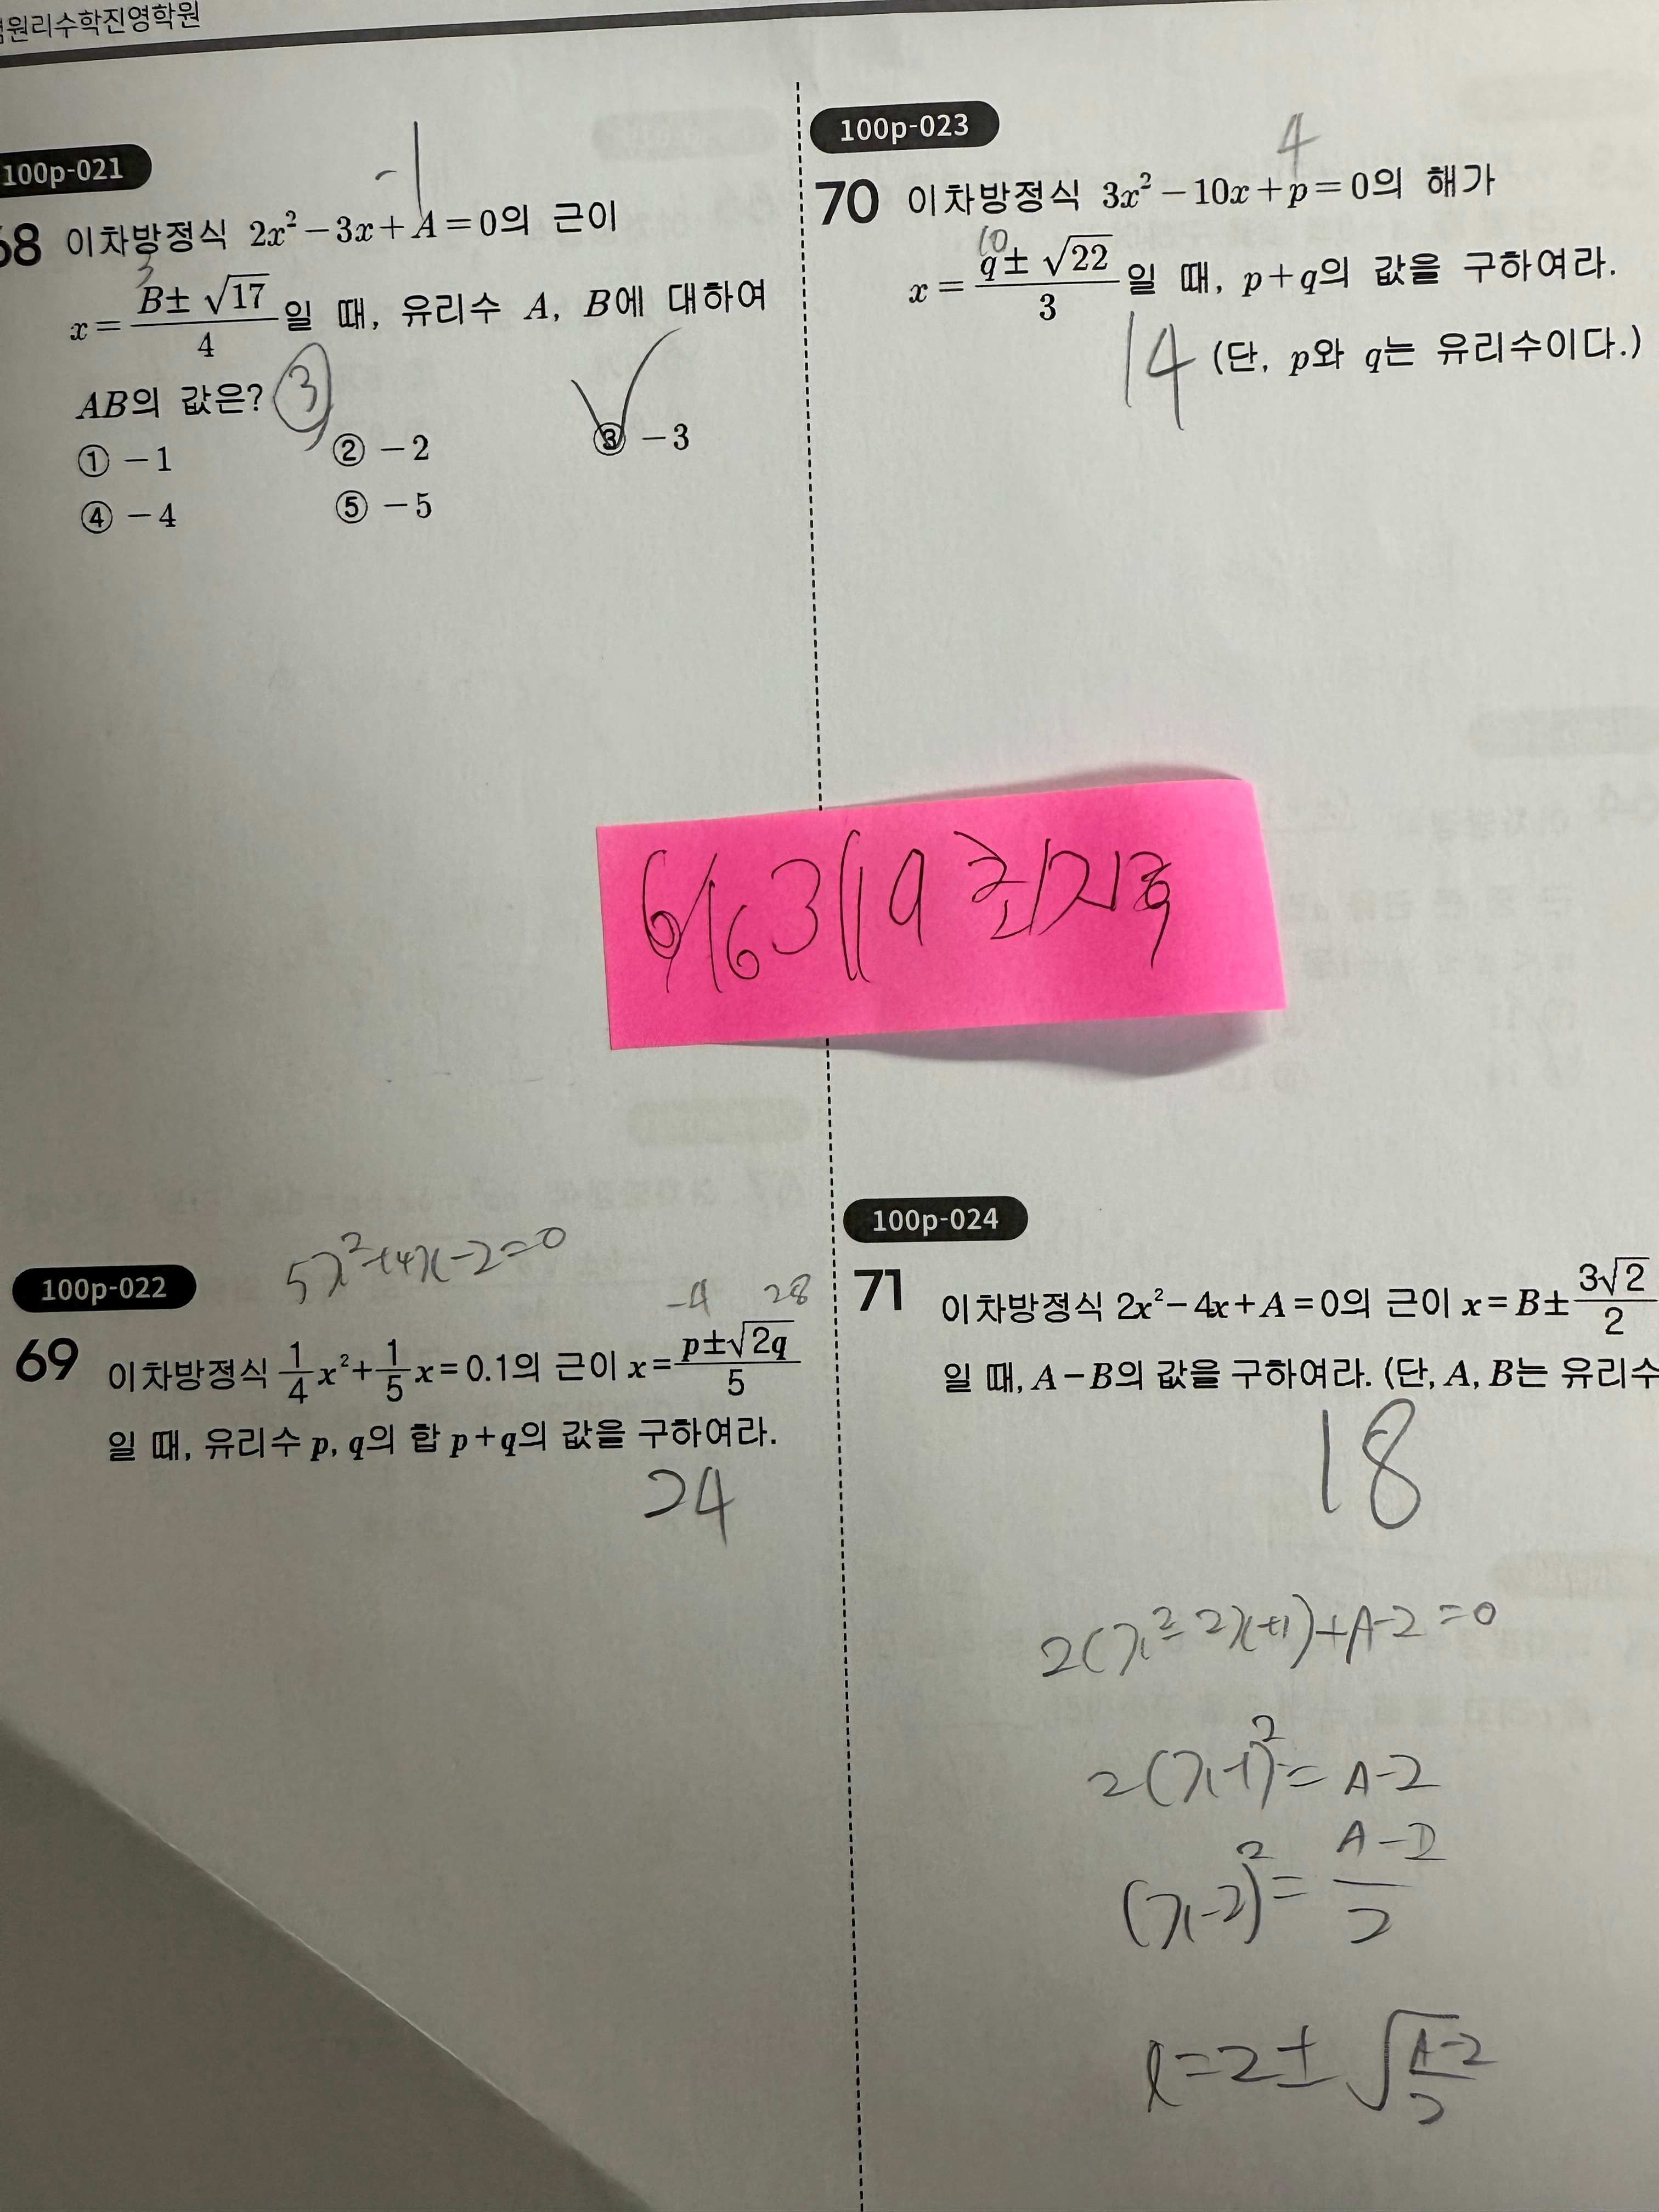 원리수학진영학원
100p-021
-1
68 이차방정식 2x² - 3x + A = 0의 근이
3
x = (B ± √17)/4 일 때, 유리수 A, B에 대하여
AB의 값은? ③
① -1 ② -2 ③ -3
④ -4 ⑤ -5
5x²+4x-2=0
100p-022
-4 28
69 이차방정식 1/4 x² + 1/5 x = 0.1의 근이 x = (p ± √2q)/5
일 때, 유리수 p, q의 합 p+q의 값을 구하여라.
24
100p-023
4
70 이차방정식 3x² - 10x + p = 0의 해가
10
x = (q ± √22)/3 일 때, p+q의 값을 구하여라.
14 (단, p와 q는 유리수이다.)
최지훈
100p-024
71 이차방정식 2x² - 4x + A = 0의 근이 x = B ± 3√2/2
일 때, A-B의 값을 구하여라. (단, A, B는 유리수
18
2(x²-2x+1)+A-2=0
2(x-1)²=A-2
(x-2)²=(A-2)/2
x=2±√((A-2)/2)